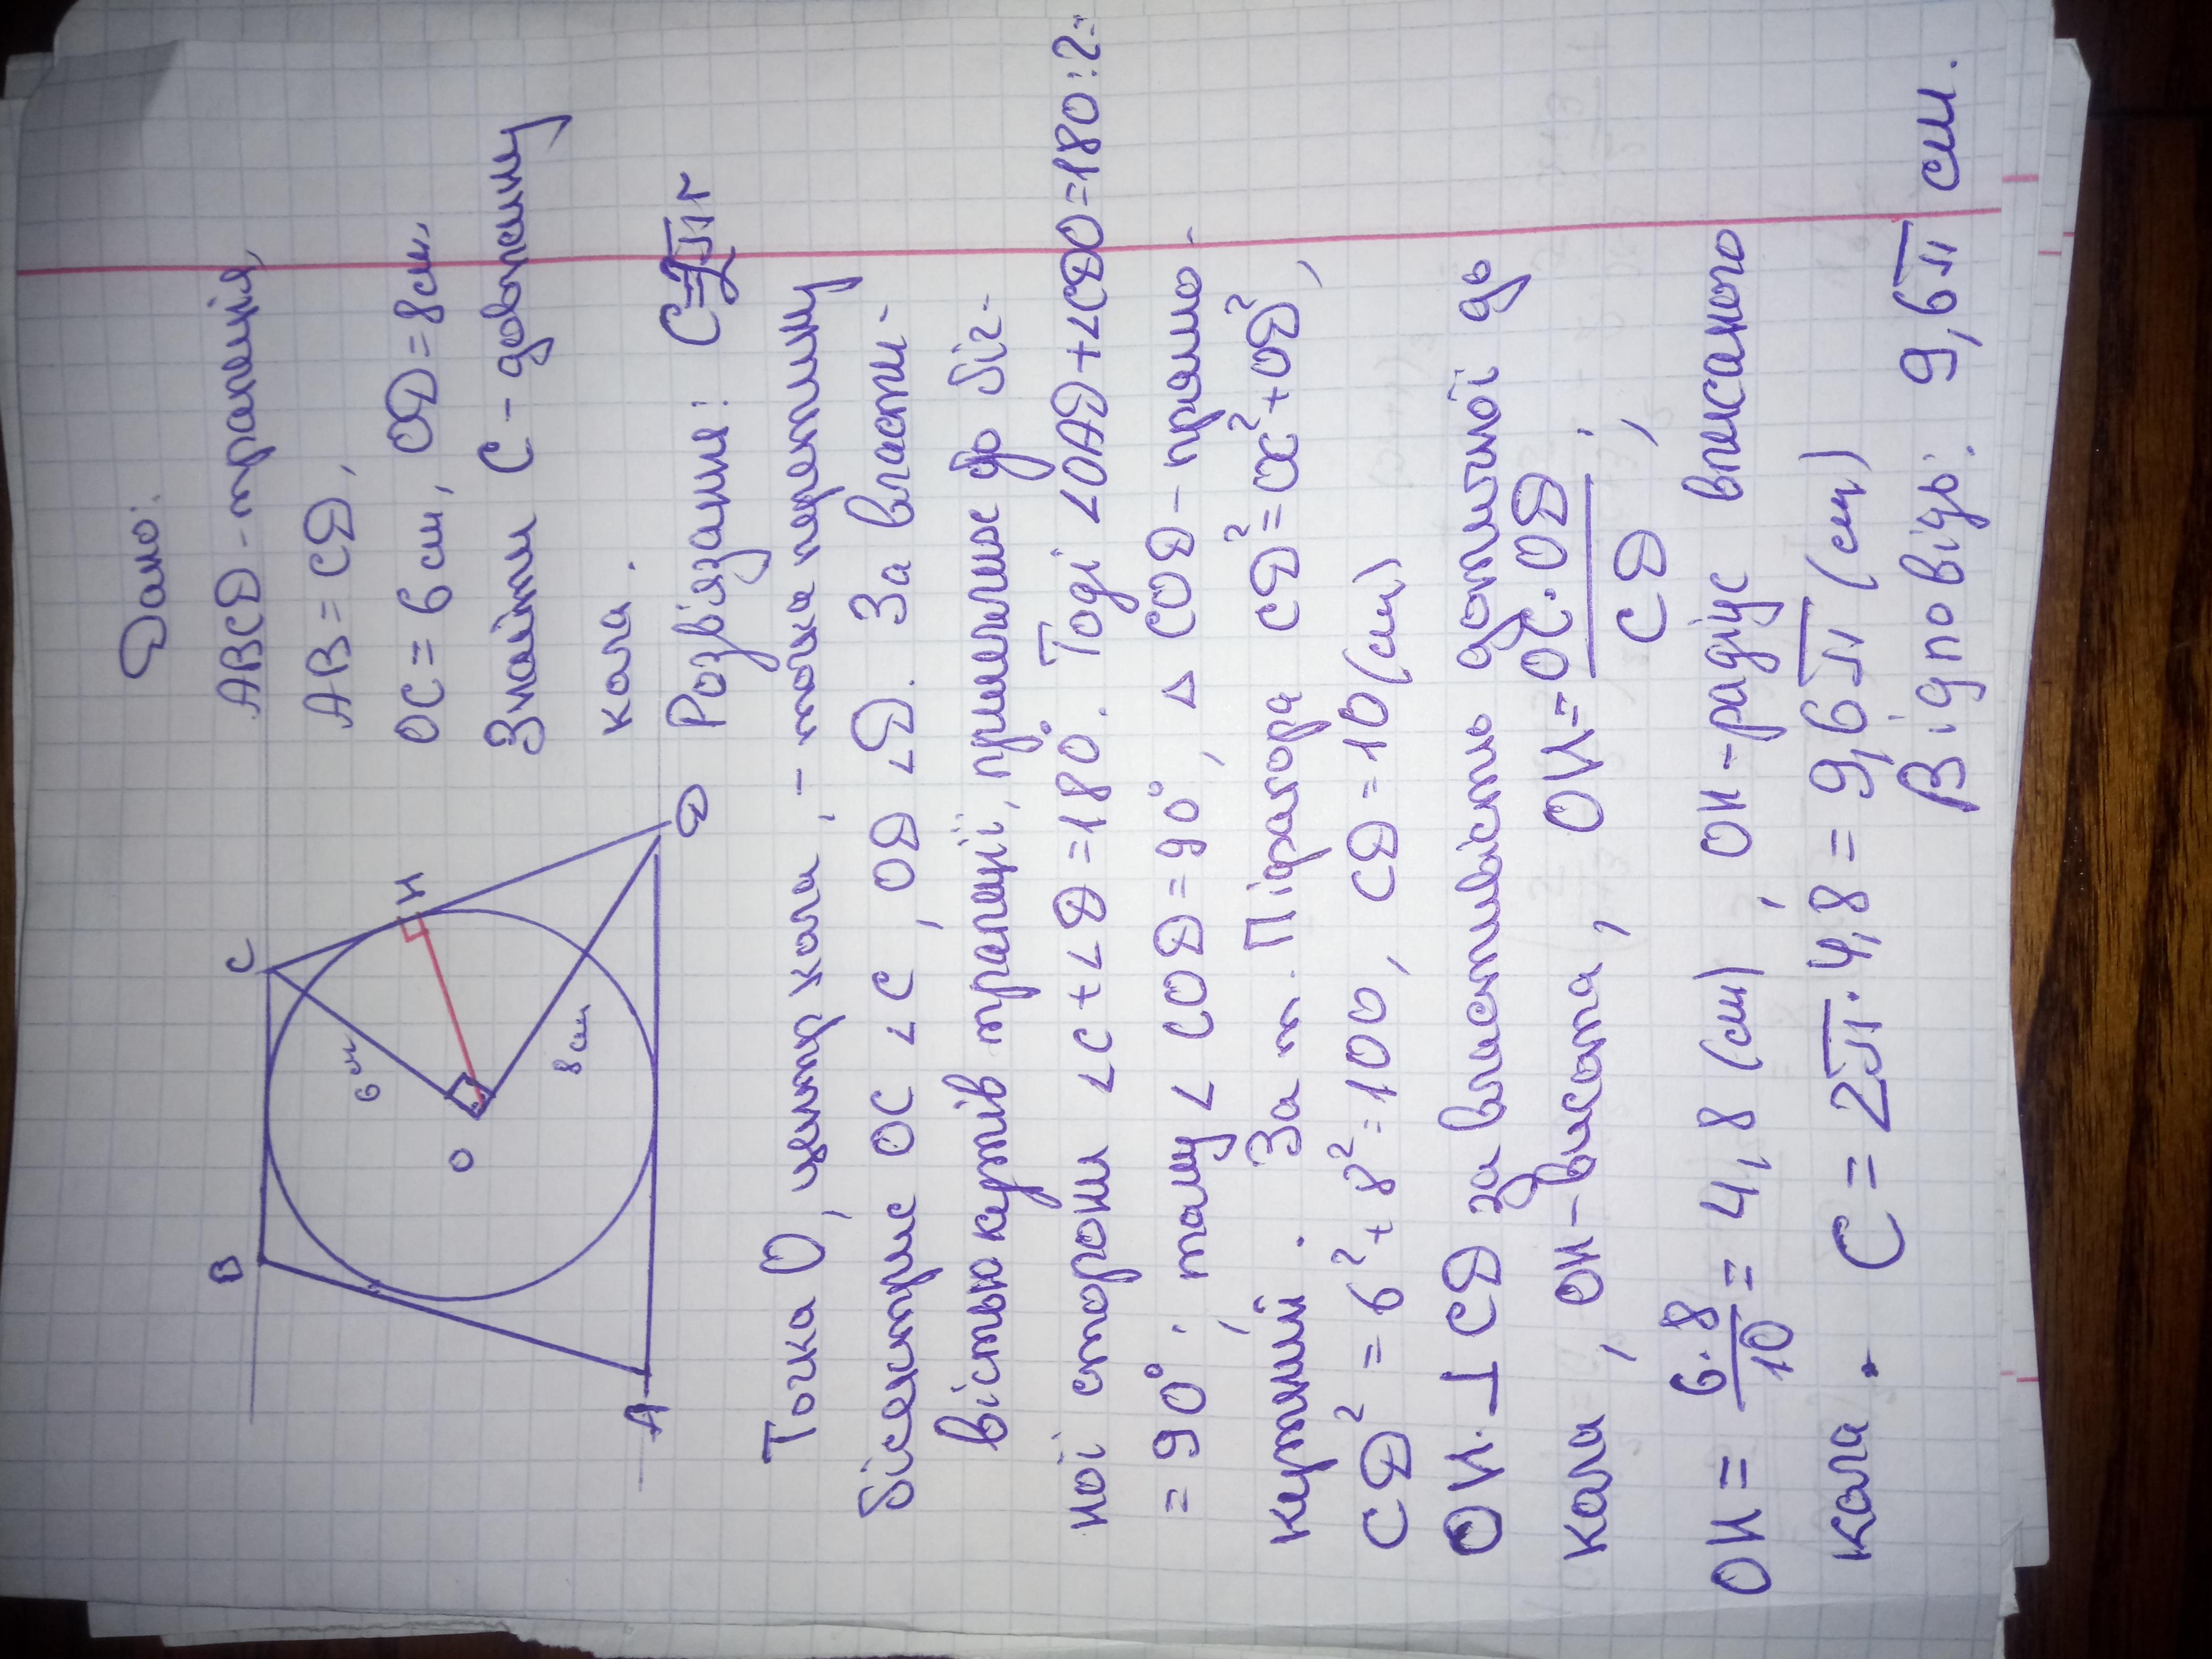 Дано:
ABCD - трапеція,
AB = CD,
OC = 6 см, OD = 8 см,
Знайти C - довжину
кола.
B
C
H
6 см
O
8 см
A
D
Розв'язання: C=2πr
Точка O, центр кола, - точка перетину
бісектрис OC ∠C, OD ∠D. За власти-
вістю кутів трапеції, прилеглих до біч-
ної сторони ∠C + ∠D = 180°. Тоді ∠OAD + ∠CDO = 180 : 2 =
= 90°; тому ∠COD = 90°, △ COD - прямо-
кутний. За т. Піфагора CD² = OC² + OD²,
CD² = 6² + 8² = 100, CD = 10 (см)
OH ⊥ CD за властивістю дотичної до
кола, OH - висота, OH = OC · OD / CD;
OH = 6·8 / 10 = 4,8 (см), OH - радіус вписаного
кола. C = 2π · 4,8 = 9,6π (см)
Відповідь: 9,6π см.